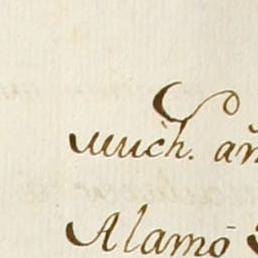 much.^s añ
Alamō